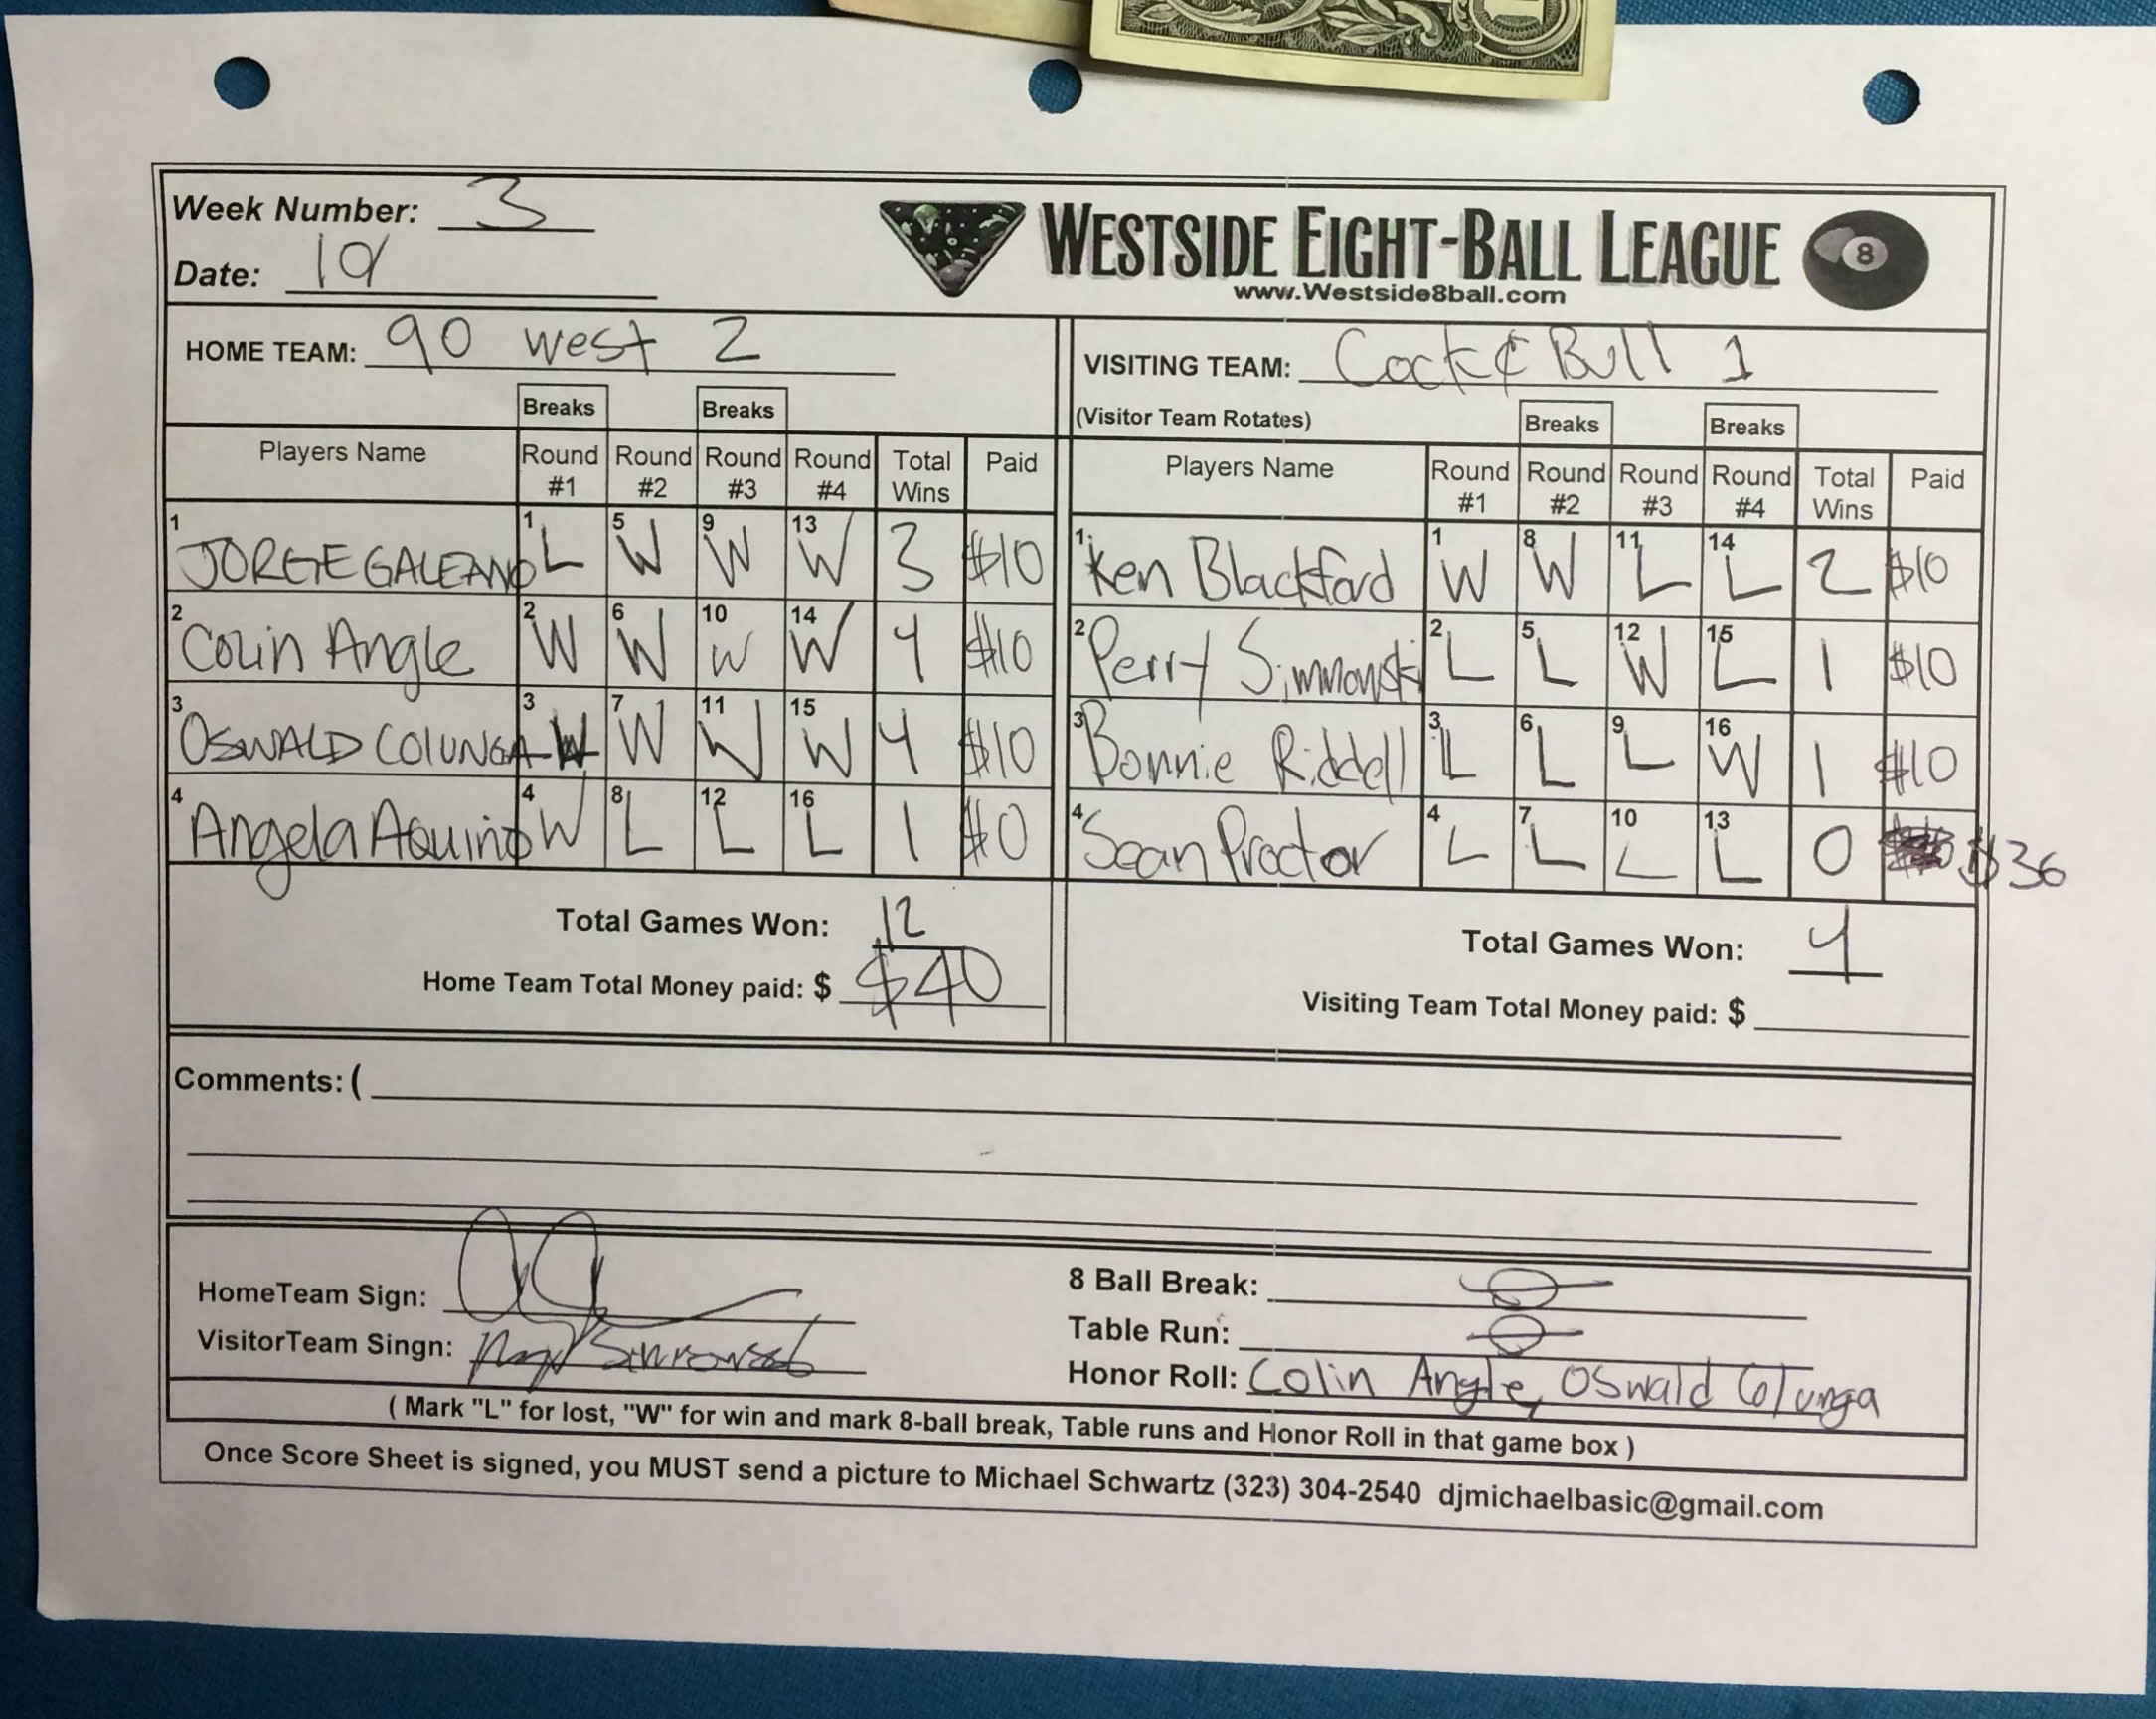 Week Number: 3
Date: 10/
WESTSIDE EIGHT-BALL LEAGUE
www.Westside8ball.com
8
HOME TEAM: 90 West 2
VISITING TEAM: Cock & Bull 1
(Visitor Team Rotates)
Breaks Breaks Breaks Breaks
Players Name Round #1 Round #2 Round #3 Round #4 Total Wins Paid Players Name Round #1 Round #2 Round #3 Round #4 Total Wins Paid
1 JORGE GALEANO 1 L 5 W 9 W 13 W 3 $10 1. Ken Blackford 1 W 8 W 11 L 14 L 2 $10
2 Colin Angle 2 W 6 W 10 W 14 W 4 $10 2 Perry Simmonski 2 L 5 L 12 W 15 L 1 $10
3 OSWALD COLUNGA 3 W 7 W 11 W 15 W 4 $10 3 Bonnie Riddell 3 L 6 L 9 L 16 W 1 $10
4 Angela Aquino 4 W 8 L 12 L 16 L 1 $10 4 Sean Proctor 4 L 7 L 10 L 13 L 0 $36
Total Games Won: 12 Total Games Won: 4
Home Team Total Money paid: $ $40 Visiting Team Total Money paid: $
Comments: (
HomeTeam Sign:
VisitorTeam Singn:
8 Ball Break:
Table Run:
Honor Roll: Colin Angle, Oswald Colunga
( Mark "L" for lost, "W" for win and mark 8-ball break, Table runs and Honor Roll in that game box )
Once Score Sheet is signed, you MUST send a picture to Michael Schwartz (323) 304-2540 djmichaelbasic@gmail.com